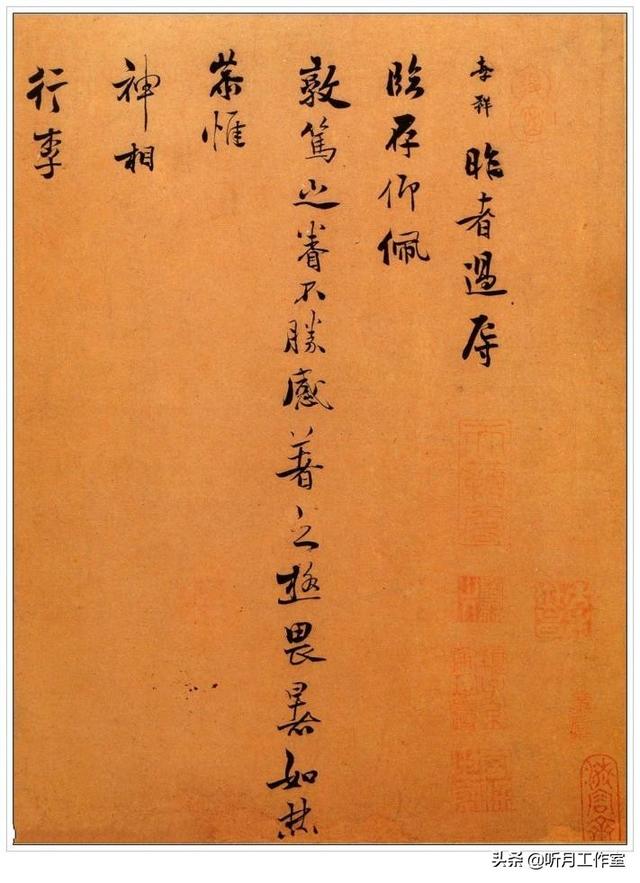 孝祥 昨者過辱
臨存仰佩
敦篤之眷不勝感著之極畏暑如焚
恭惟
神相
行李
头条 @听月工作室